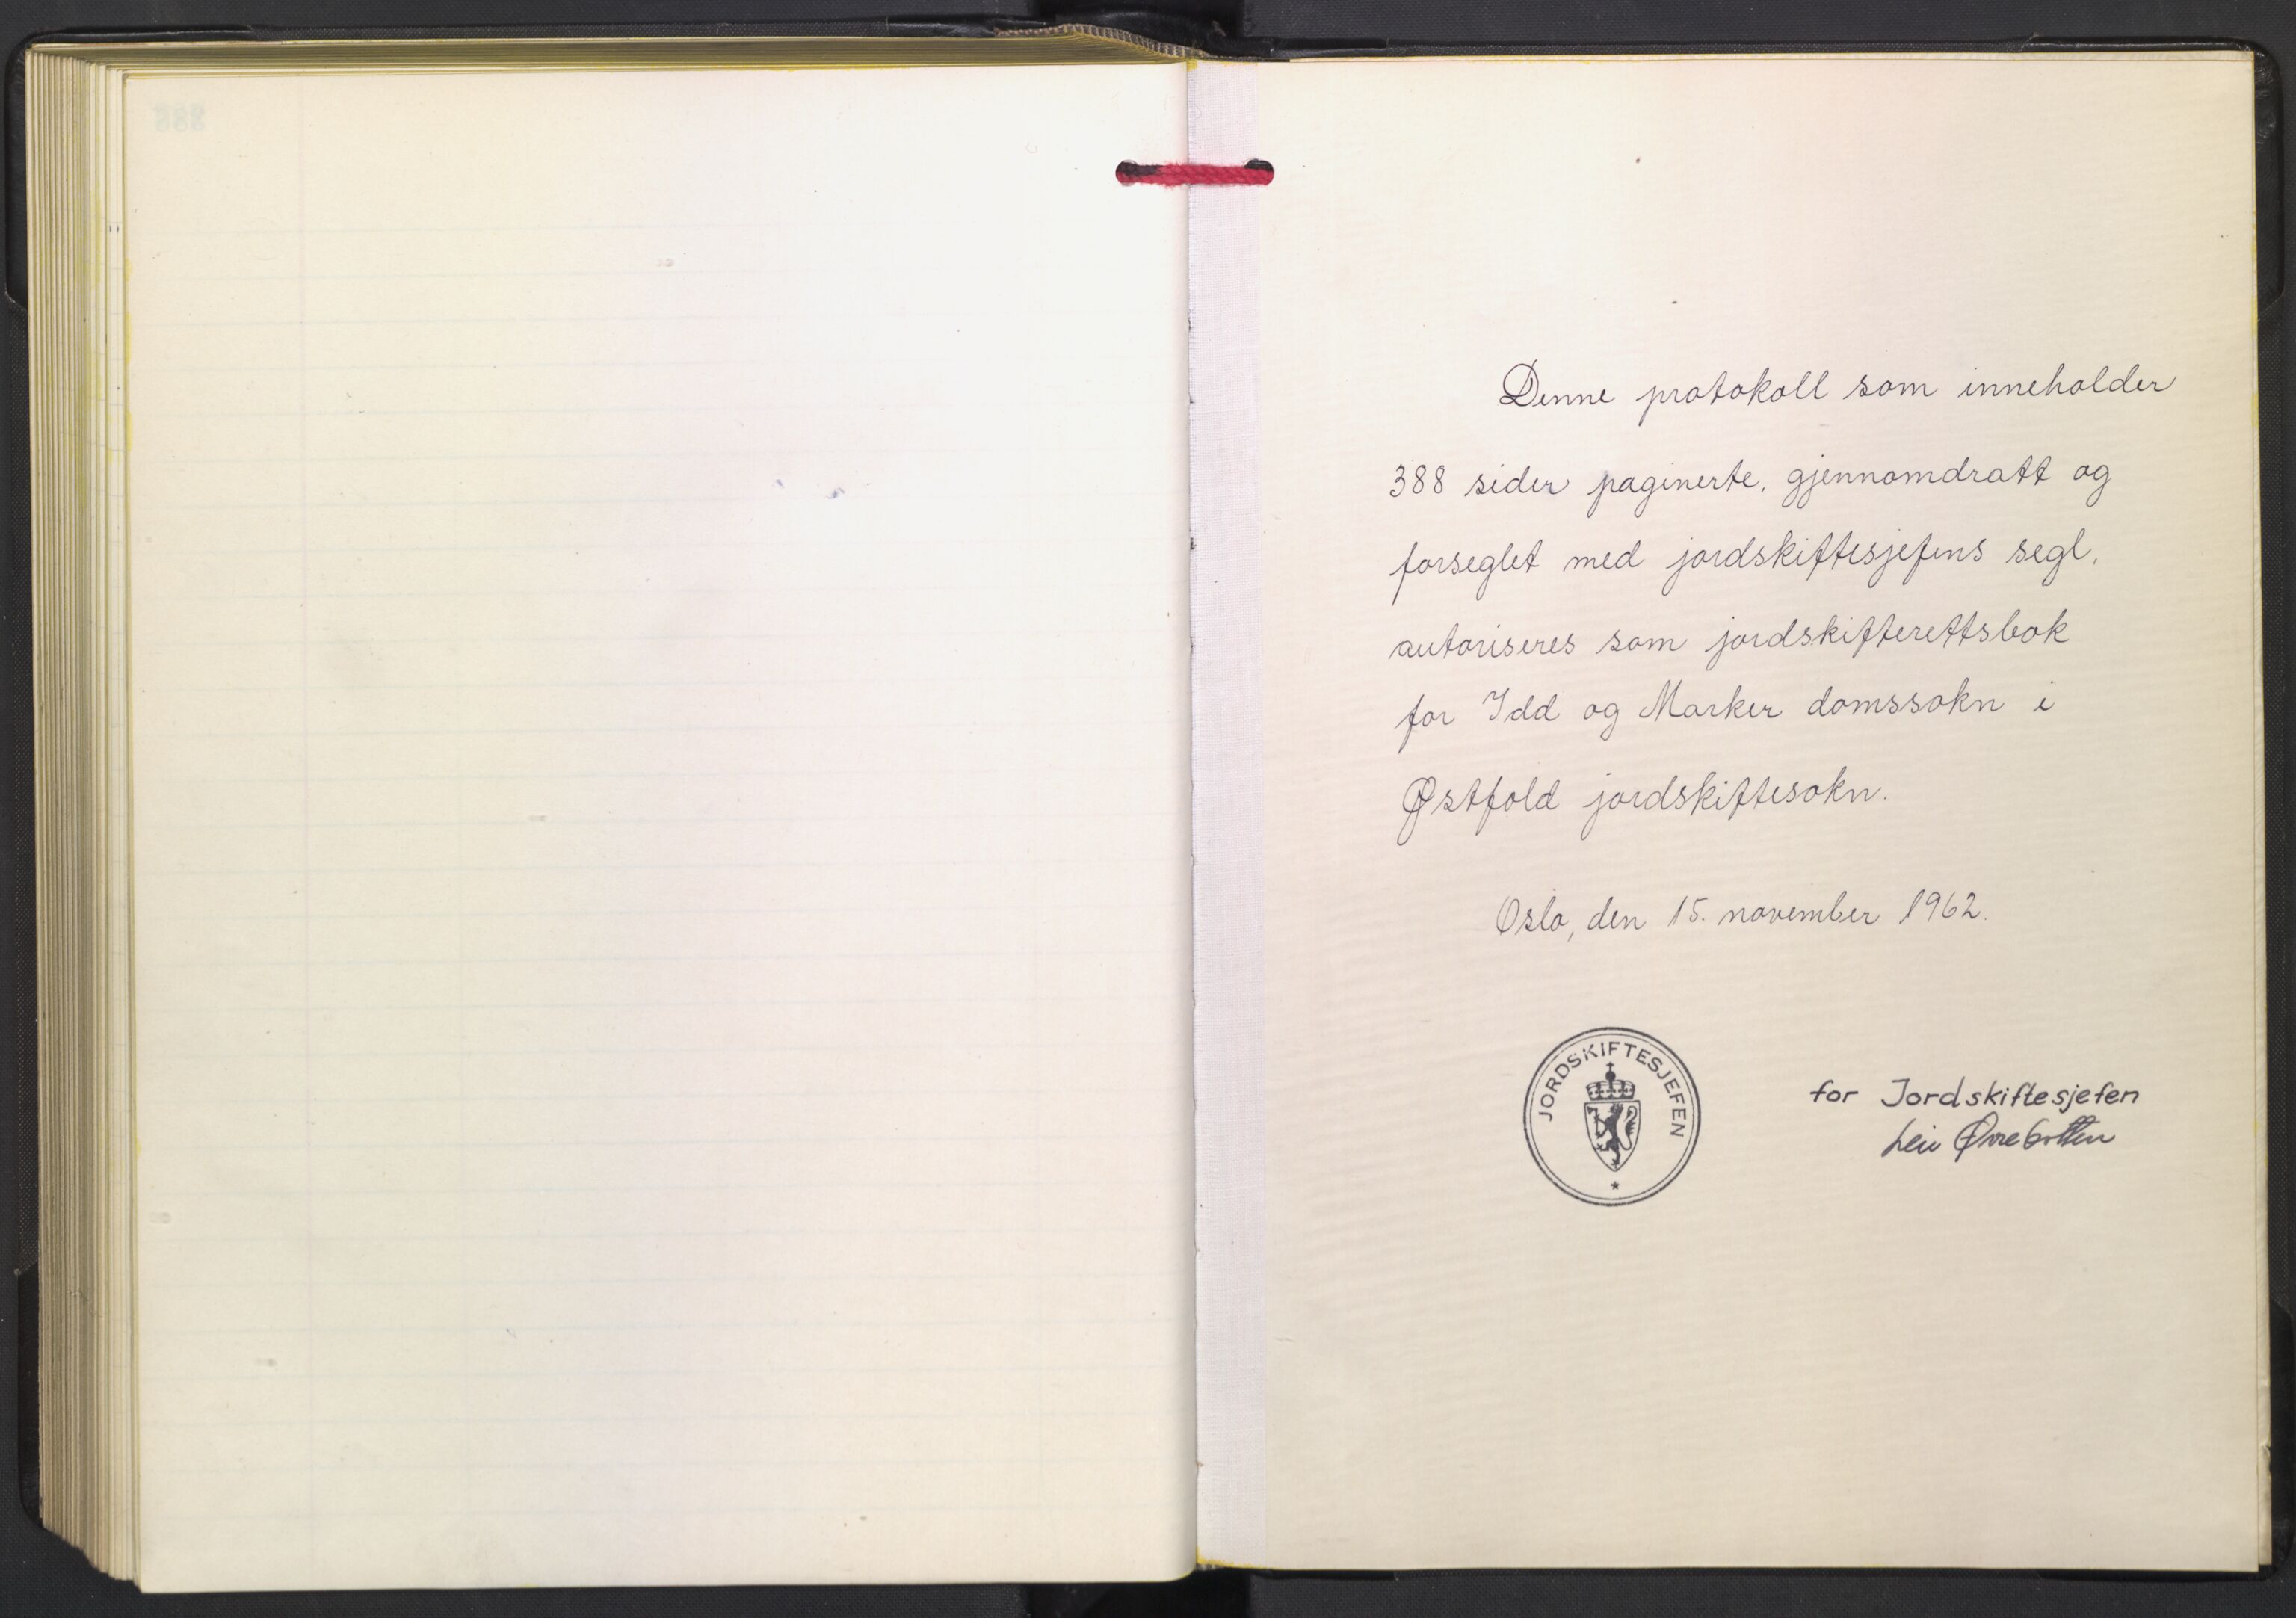 Denne protokoll som inneholder
388 sider paginerte, gjennomdratt og
forseglet med jordskiftesjefens segl,
autoriseres som jordskifterettsbok
for Idd og Marker domssokn i
Østfold jordskiftesokn.
Oslo, den 15. november 1962.
JORDSKIFTESJEFEN
for Jordskiftesjefen
Leiv Øvrebotten